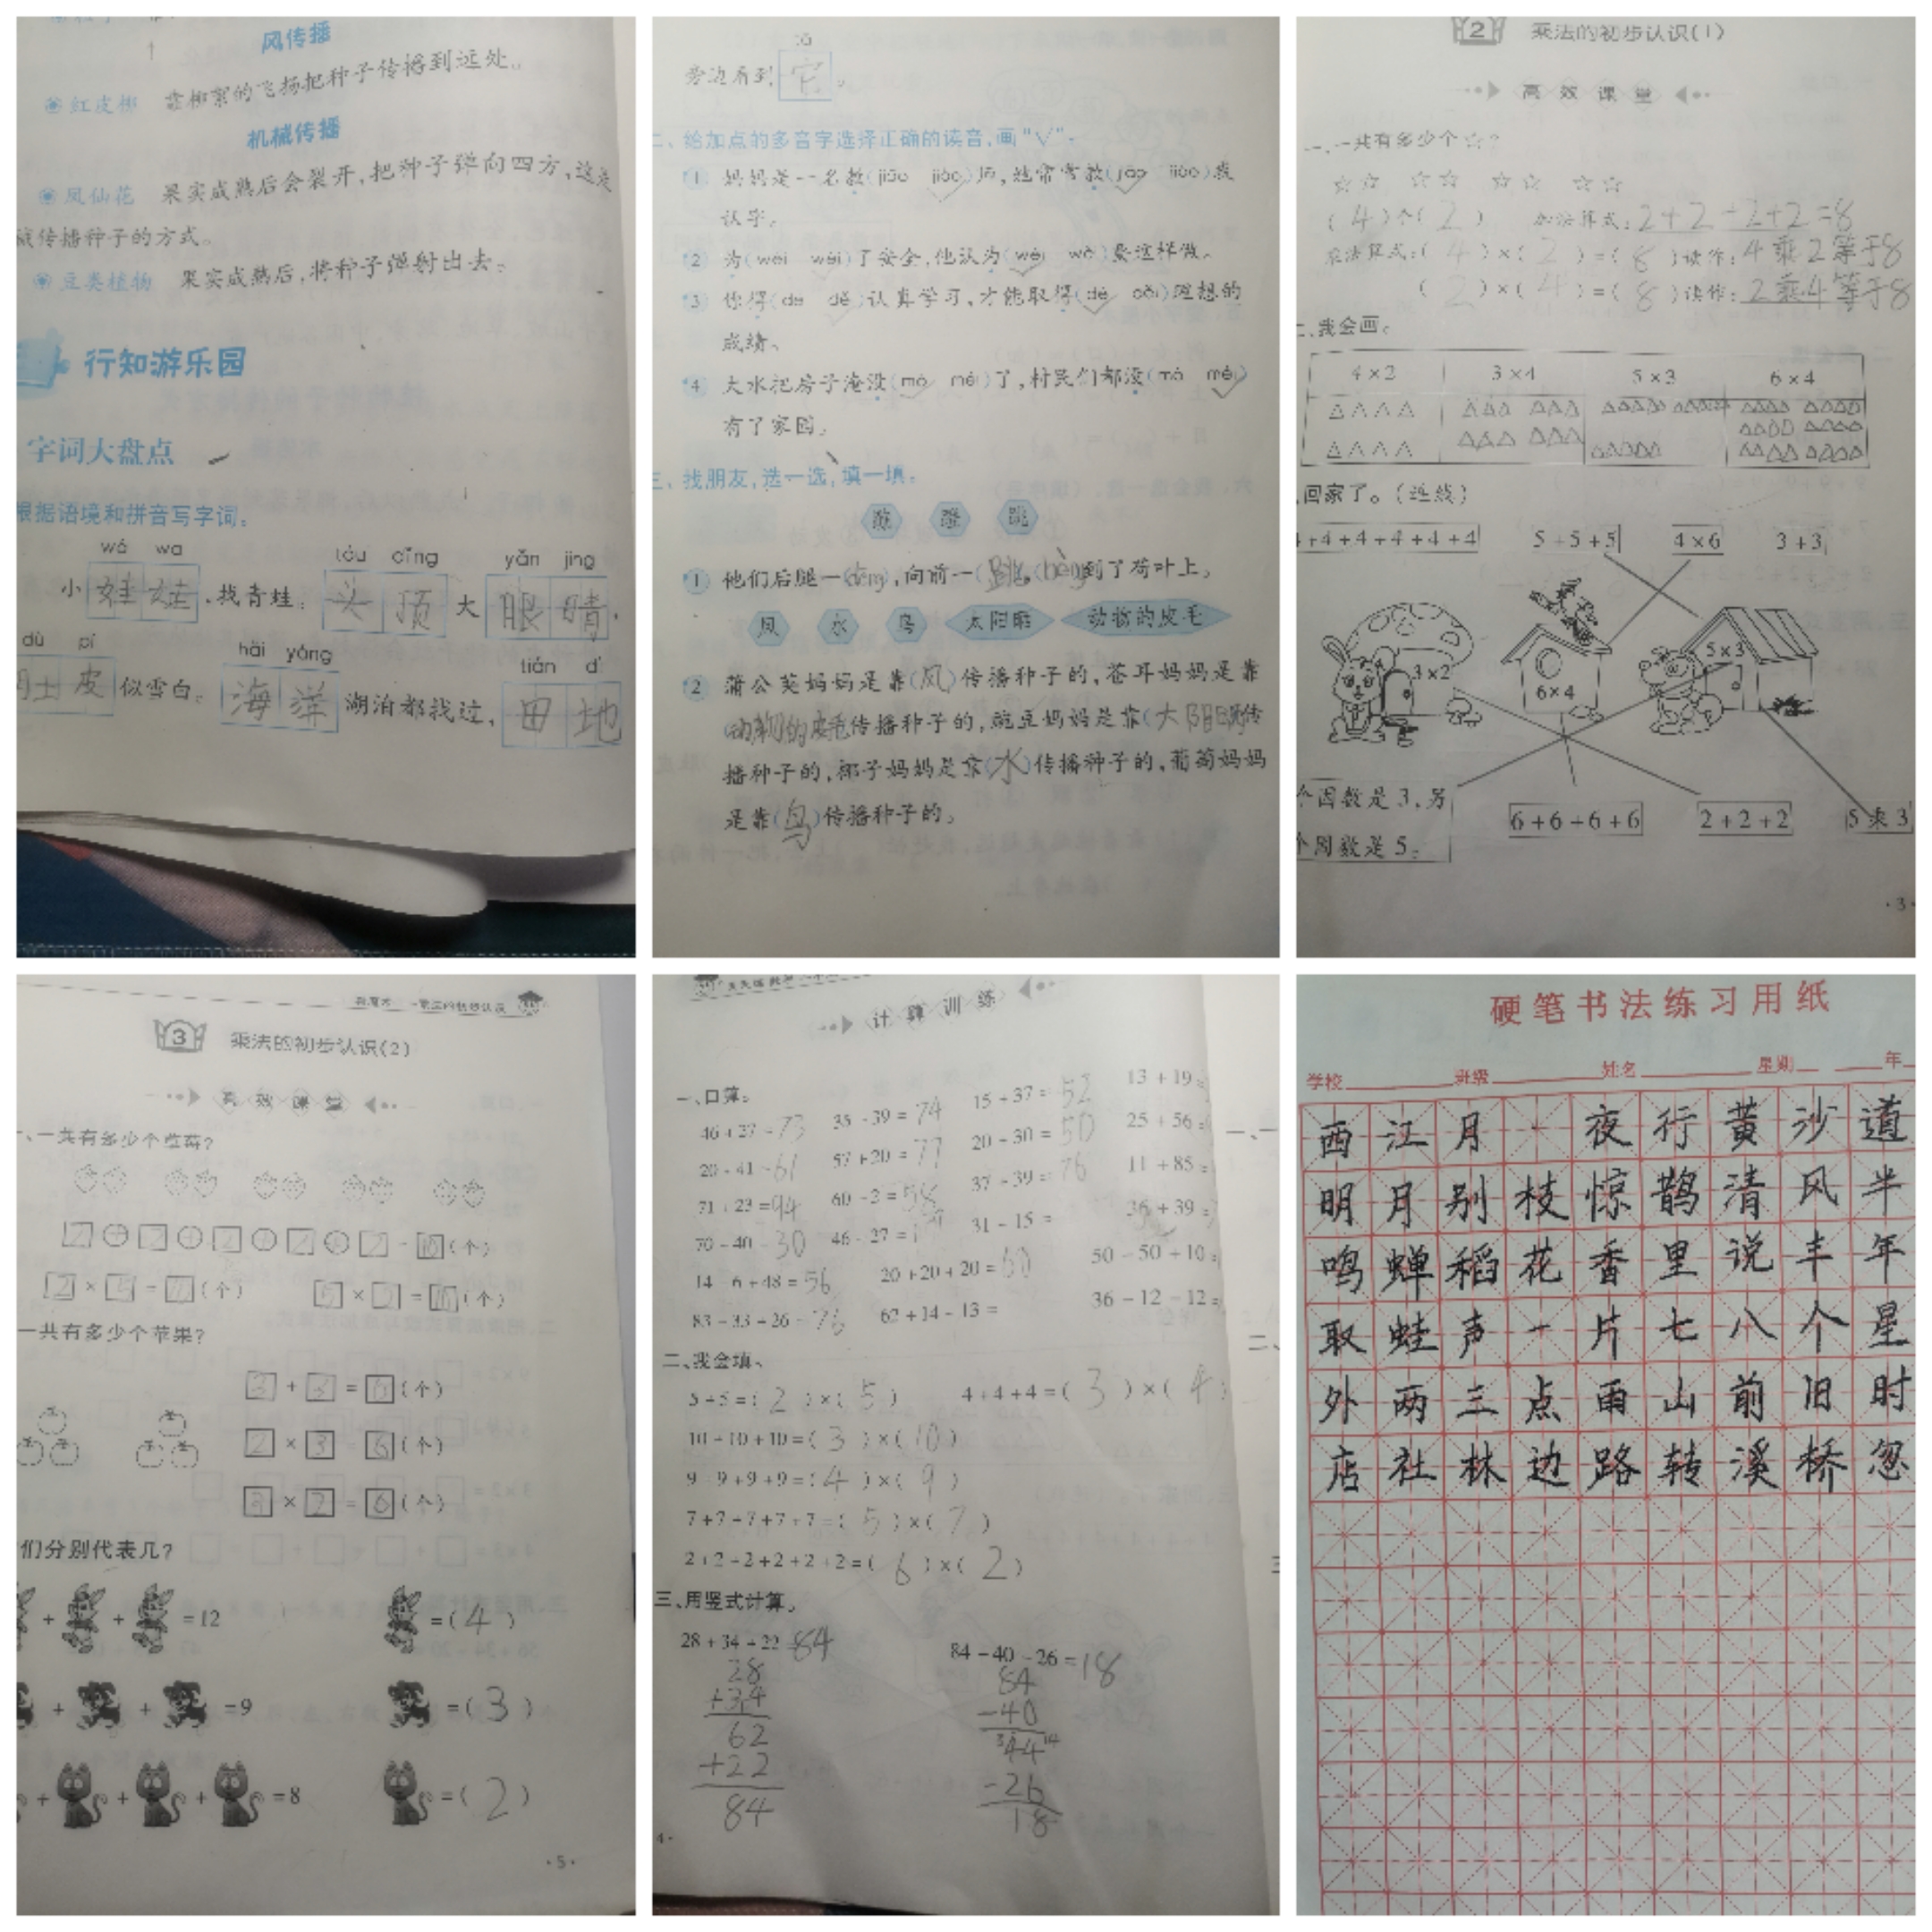 风传播
红皮柳 靠柳絮的飞扬把种子传播到远处。
机械传播
凤仙花 果实成熟后会裂开,把种子弹向四方,这是
械传播种子的方式。
豆类植物 果实成熟后,将种子弹射出去。
行知游乐园
字词大盘点
根据语境和拼音写字词。
wá wa tóu dǐng yǎn jing
小娃娃,找青蛙。头顶大眼睛,
dù pí hǎi yáng tián dì
肚皮似雪白。海洋湖泊都找过,田地
tā
旁边看到它。
二、给加点的多音字选择正确的读音,画“√”。
1 妈妈是一名教(jiāo jiào)师,她常常教(jāo jiào)我
认字。
2 为(wéi wèi)了安全,他认为(wéi wò)要这样做。
3 你得(de děi)认真学习,才能取得(dé děi)理想的
成绩。
4 大水把房子淹没(mò méi)了,村民们都没(mò méi)
有了家园。
三、找朋友,选一选,填一填。
蹦 蹬 跳
1 他们后腿一(dēng),向前一(跳),(bèng)到了荷叶上。
风 水 鸟 太阳晒 动物的皮毛
2 蒲公英妈妈是靠(风)传播种子的,苍耳妈妈是靠
(动物的皮毛)传播种子的,豌豆妈妈是靠(大阳晒)传
播种子的,椰子妈妈是靠(水)传播种子的,葡萄妈妈
是靠(鸟)传播种子的。
2 乘法的初步认识(1)
高效课堂
一、一共有多少个☆?
☆☆ ☆☆ ☆☆ ☆☆
(4)个(2) 加法算式:2+2+2+2=8
乘法算式:(4)×(2)=(8)读作:4乘2等于8
(2)×(4)=(8)读作:2乘4等于8
二、我会画。
4×2 3×4 5×3 6×4
回家了。(连线)
4+4+4+4+4+4 5+5+5 4×6 3+3
3×2 6×4 5×3
个因数是3,另
个因数是5。
6+6+6+6 2+2+2 5乘3
·3·
3 乘法的初步认识(2)
高效课堂
一、一共有多少个草莓?
2+2+2+2+2=10(个)
2×5=10(个) 5×2=10(个)
一共有多少个苹果?
3+3=6(个)
2×3=6(个)
3×2=6(个)
们分别代表几?
+ + =12 =(4)
+ + =9 =(3)
+ + + =8 =(2)
·5·
计算训练
一、口算。
46+27=73 35+39=74 15+37=52 13+19=
20+41=61 57+20=77 20+30=50 25+56=
71+23=94 60-2=58 37+39=76 11+85=
70-40=30 46-27= 31-15= 36+39=
14-6+48=56 20+20+20=60 50-50+10=
83-33+26=76 62+14-13= 36-12-12=
二、我会填。
5+5=(2)×(5) 4+4+4=(3)×(4)
10+10+10=(3)×(10)
9+9+9+9=(4)×(9)
7+7+7+7+7=(5)×(7)
2+2+2+2+2+2=(6)×(2)
三、用竖式计算。
28+34+22=84 84-40-26=18
28 84
+34 -40
62 44
+22 -26
84 18
4·
硬笔书法练习用纸
学校 班级 姓名 星期 年
西江月·夜行黄沙道
明月别枝惊鹊清风半
鸣蝉稻花香里说丰年
取蛙声一片七八个星
外两三点雨山前旧时
店社林边路转溪桥忽